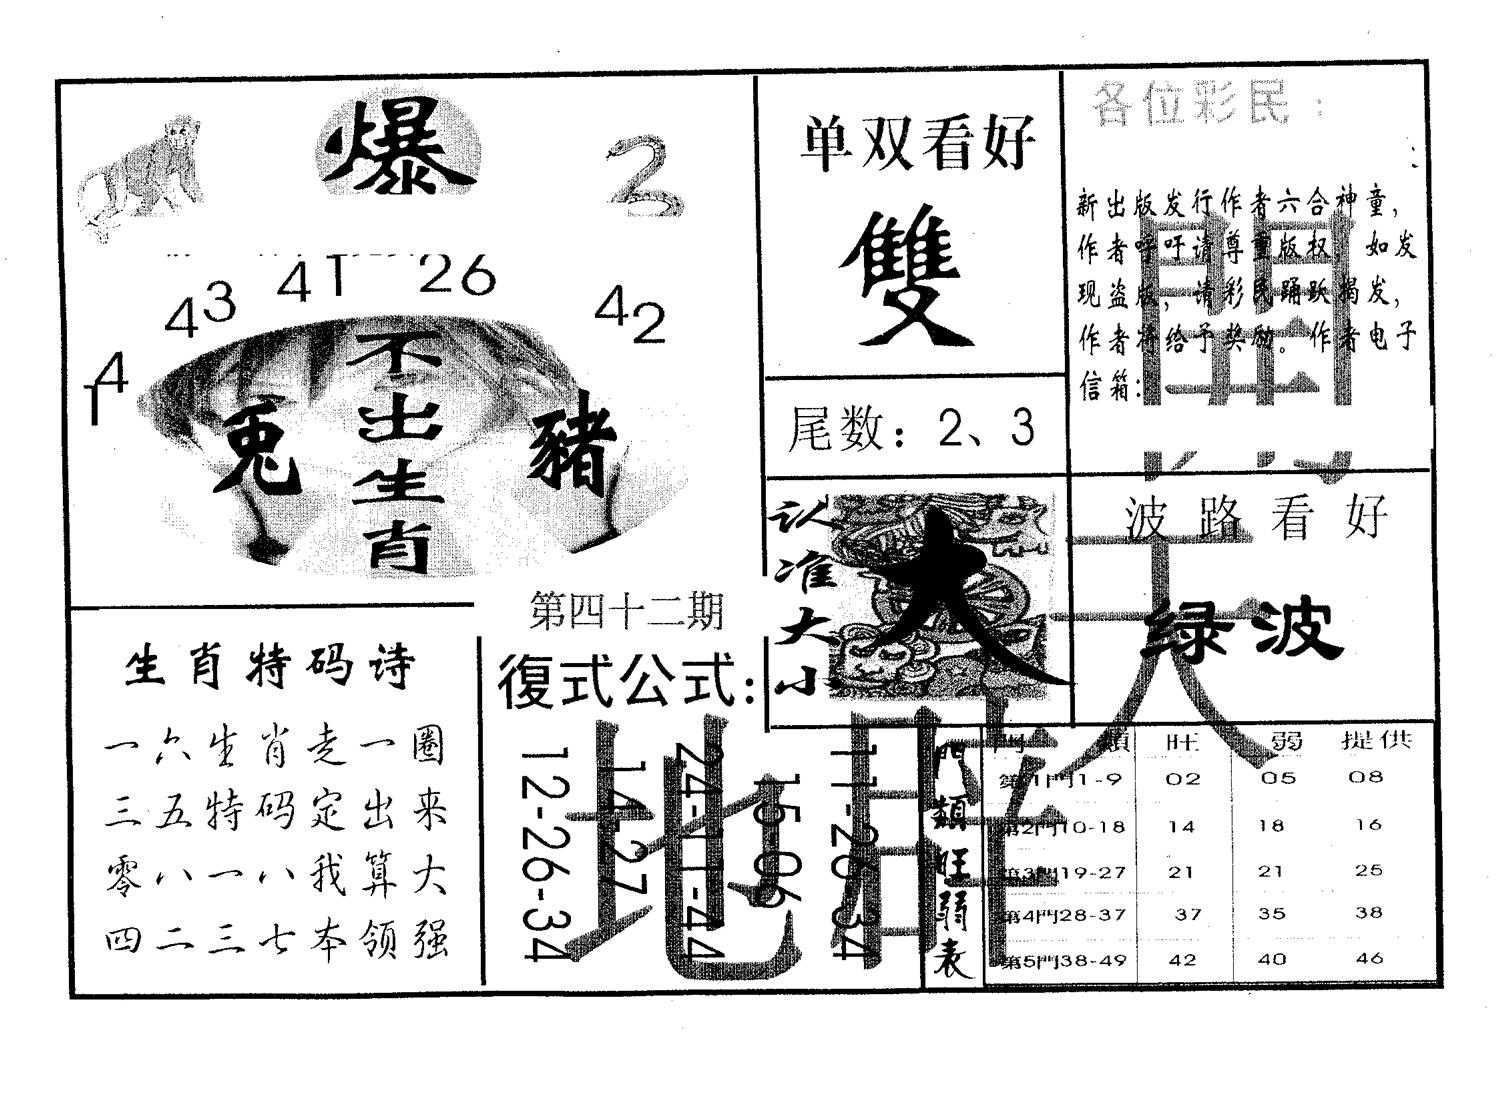 爆
14
43
41
26
42
不出生肖
兔
豬
第四十二期
单双看好
雙
尾数：2、3
认准大小
大
各位彩民：
新出版发行作者六合神童，
作者呼吁请尊重版权，如发
现盗版，请彩民踊跃揭发，
作者将给予奖励。作者电子
信箱：
波路看好
绿波
生肖特码诗
一六生肖走一圈
三五特码定出来
零八一八我算大
四二三七本领强
復式公式：
12-26-34
14-27
24-11-44
15-06
11-26-34
門類旺弱表
門 類 旺 弱 提供
第1門1-9 02 05 08
第2門10-18 14 18 16
第3門19-27 21 21 25
第4門28-37 37 35 38
第5門38-49 42 40 46
天
地